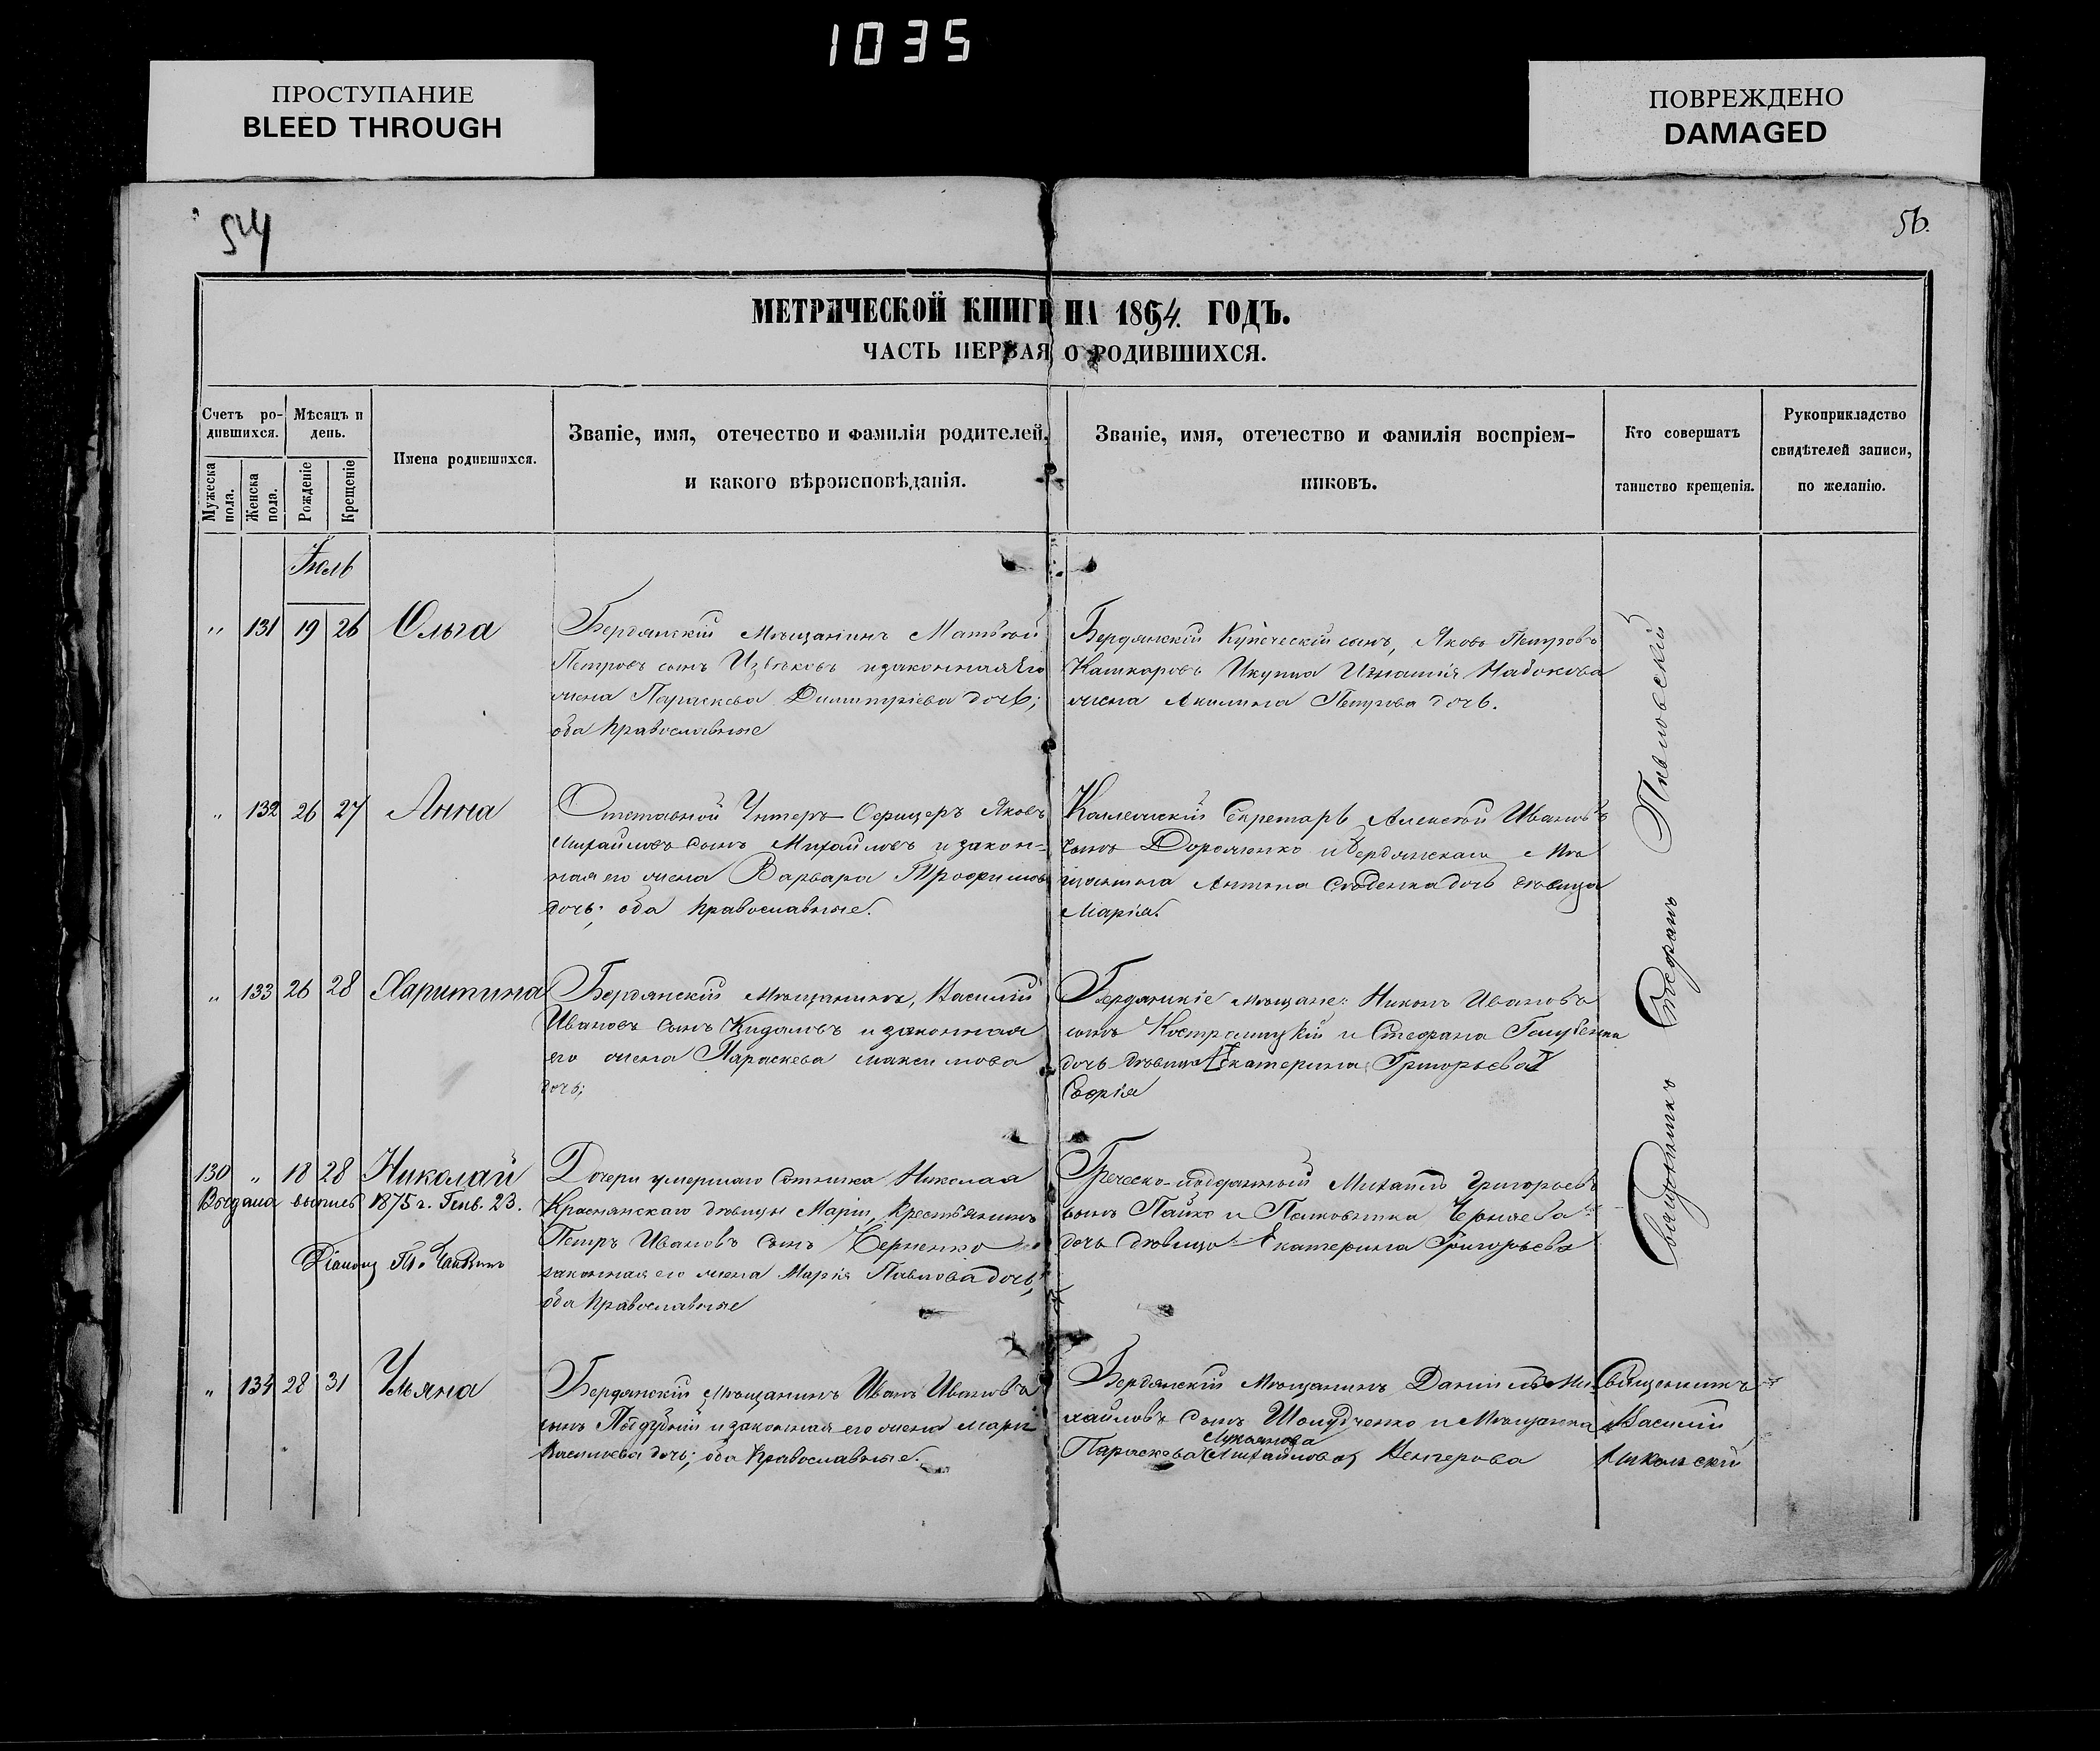 1035
ПРОСТУПАНИЕ
BLEED THROUGH
ПОВРЕЖДЕНО
DAMAGED
54
56.
МЕТРИЧЕСКОЙ КНИГИ НА 1864. ГОДЪ.
ЧАСТЬ ПЕРВАЯ О РОДИВШИХСЯ.
Счетъ ро-
дившихся.
Мужеска
пола.
Женска
пола.
Мѣсяцъ и
день.
Рожденіе
Крещеніе
Имена родившихся.
Званіе, имя, отечество и фамилія родителей,
и какого вѣроисповѣданія.
Званіе, имя, отечество и фамилія воспріем-
никовъ.
Кто совершатъ
таинство крещенія.
Рукоприкладство
свидѣтелей записи,
по желанію.
Іюль
" 131 19 26 Ольга
Бердянскій Мѣщанинъ Матвѣй
Петровъ сынъ Извѣковъ и законная его
жена Параскева Димитріева дочь;
оба православные
Бердянскій Купеческій сынъ, Яковъ Петровъ
Кашкаровъ И купца Игнатія Набокова
жена Акилина Петрова дочь.
" 132 26 27 Анна
Отставной Унтеръ-Офицеръ Яковъ
Михайловъ сынъ Михайловъ и закон-
ная его жена Варвара Трофимова
дочь; оба православные.
Коллежскій Секретарь Алексѣй Ивановъ
сынъ и Бердянскаго Мѣ
щанина Антона дочь дѣвица
Марія.
" 133 26 28 Харитина
Бердянскій Мѣщанинъ, Василій
Ивановъ сынъ и законная
его жена Параскева Максимова
дочь;
Бердянскіе мѣщане: Никонъ Ивановъ
сынъ и Стефана Голубенка
дочь дѣвица [Екатерина Григорьева]
Софія
130 " 18 28 Николай
Выдана выпись 1875 г. Генв. 23.
Дочери умершаго Сотника Николая
Краснянскаго дѣвицы Маріи, Крестьянинъ
Петръ Ивановъ сынъ Черненко и
законная его жена Марія Павлова дочь;
оба православные
Греческо-подданный Михаилъ Григорьевъ
сынъ Пайко и Полковника Черняева
дочь дѣвица Екатерина Григорьева
Священникъ Стефанъ Павловскій
" 134 28 31 Ульяна
Бердянскій Мѣщанинъ Иванъ Ивановъ
сынъ Поддубный и законная его жена Марія
Васильева дочь; оба православные.
Бердянскій Мѣщанинъ Даніилъ Ми-
хайловъ сынъ Шолудченко и Мѣщанка
Лукьянова
Параскева (Михайлова) Венгерова
Священникъ
Василій
Никольскій